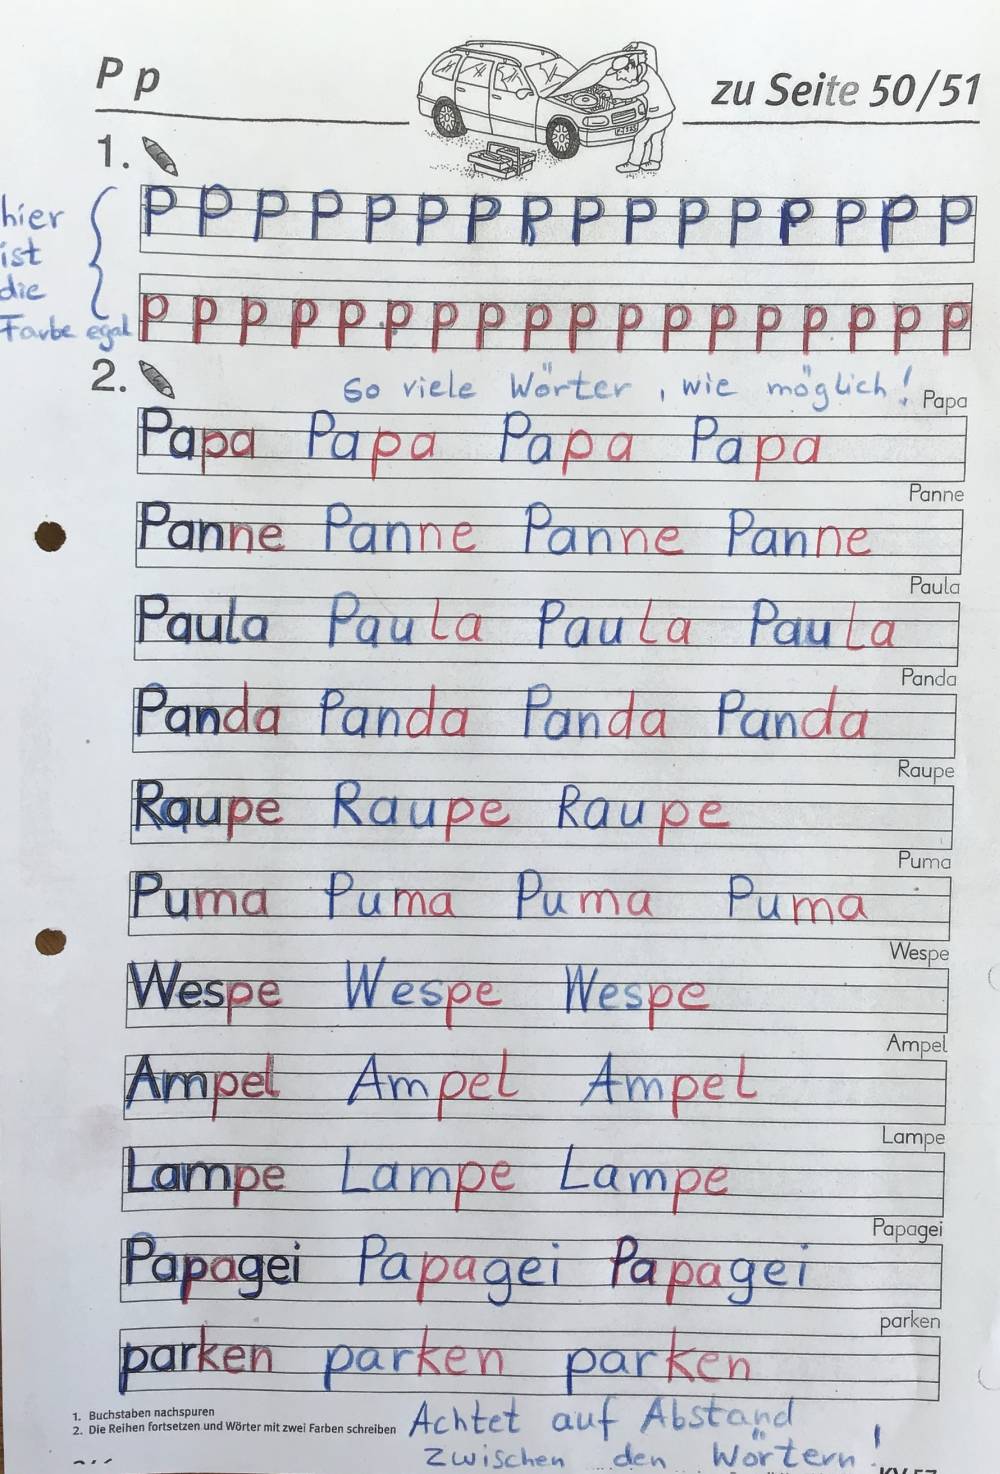 P p
zu Seite 50/51
1.
hier
ist
die
Farbe egal
P P P P P P P P P P P P P P P P
p p p p p p p p p p p p p p p p p p
2.
So viele Wörter, wie möglich!
Papa
Papa Papa Papa Papa
Panne
Panne Panne Panne Panne
Paula
Paula Paula Paula Paula
Panda
Panda Panda Panda Panda
Raupe
Raupe Raupe Raupe
Puma
Puma Puma Puma Puma
Wespe
Wespe Wespe Wespe
Ampel
Ampel Ampel Ampel
Lampe
Lampe Lampe Lampe
Papagei
Papagei Papagei Papagei
parken
parken parken parken
1. Buchstaben nachspuren
2. Die Reihen fortsetzen und Wörter mit zwei Farben schreiben
Achtet auf Abstand
zwischen den Wörtern!